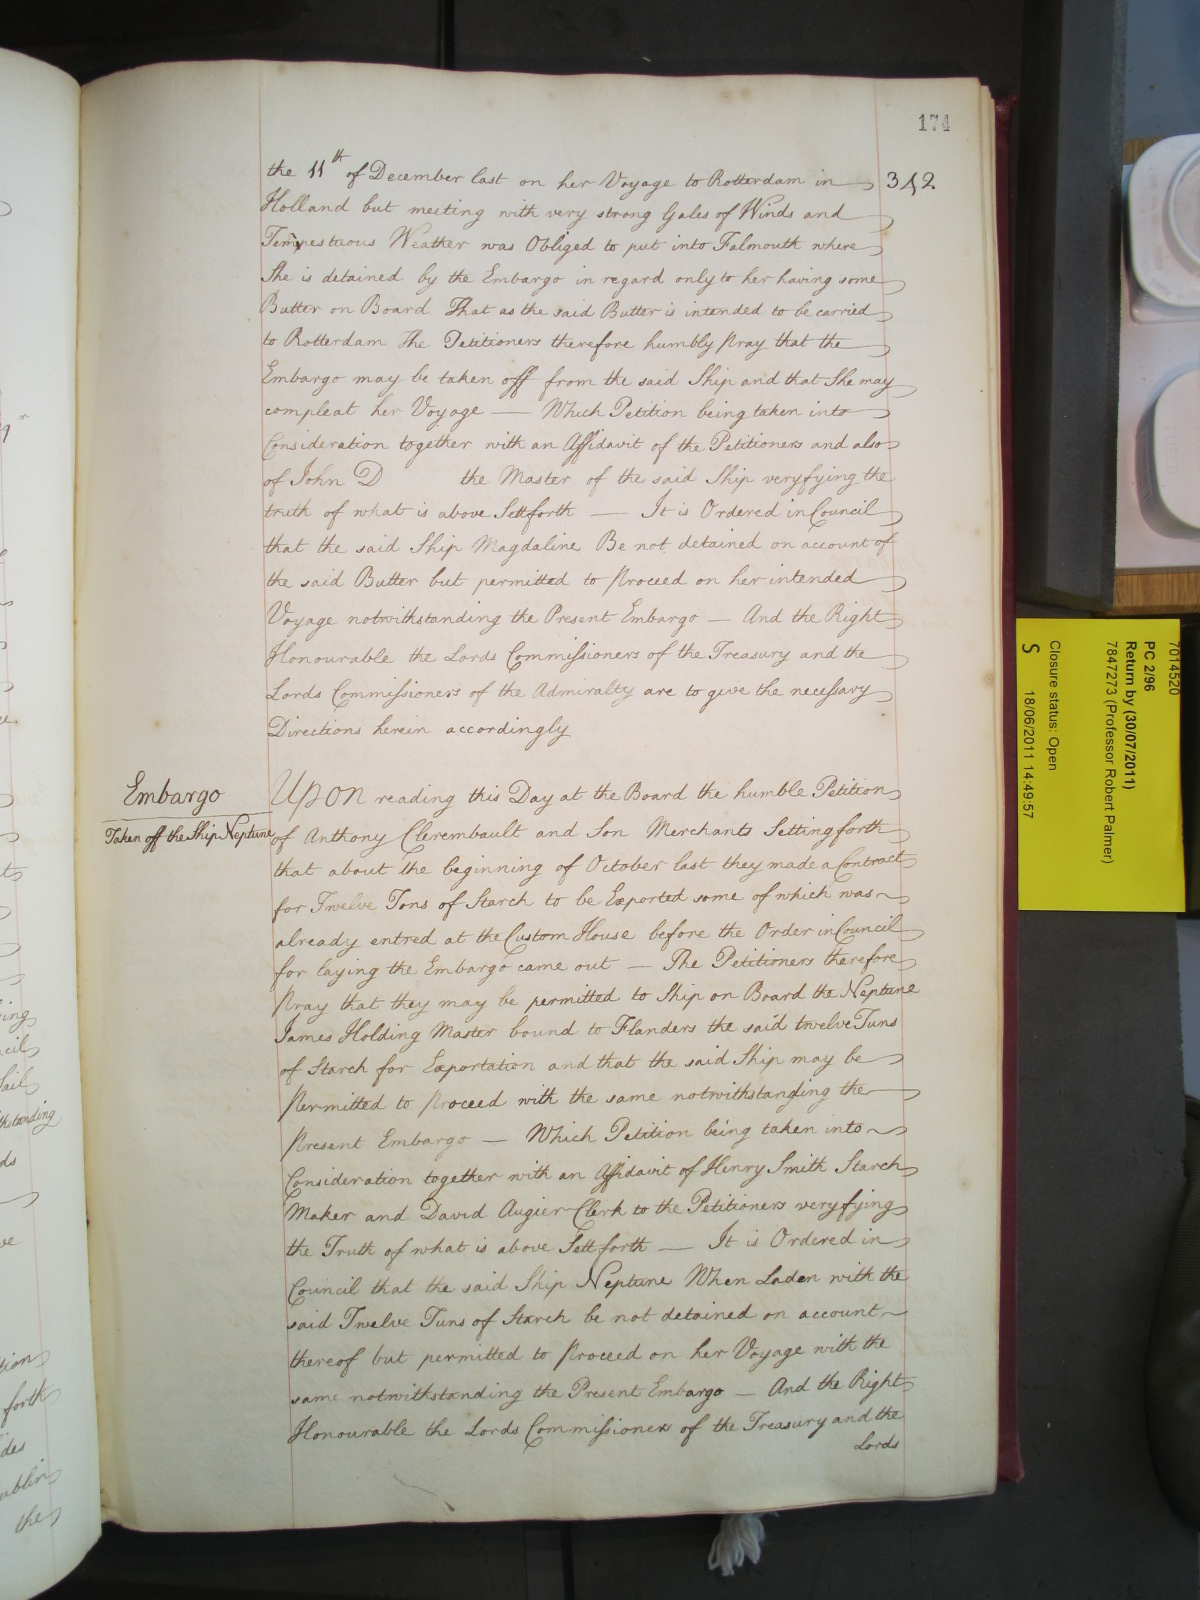 174
342
the 11th of December last on her Voyage to Rotterdam in
Holland but meeting with very strong Gales of Winds and
Tempestuous Weather was Obliged to put into Falmouth where
She is detained by the Embargo in regard only to her having some
Butter on Board That as the said Butter is intended to be carried
to Rotterdam The Petitioners therefore humbly Pray that the
Embargo may be taken off from the said Ship and that She may
compleat her Voyage — Which Petition being taken into
Consideration together with an Affidavit of the Petitioners and also
of John D the Master of the said Ship veryfying the
truth of what is above Settforth — It is Ordered in Council
that the said Ship Magdaline Be not detained on account of
the said Butter but permitted to Proceed on her intended
Voyage notwithstanding the Present Embargo — And the Right
Honourable the Lords Commissioners of the Treasury and the
Lords Commissioners of the Admiralty are to give the necessary
Directions herein accordingly
Embargo
Taken off the Ship Neptune
UPON reading this Day at the Board the humble Petition
of Anthony Clerembault and Son Merchants Setting forth
that about the beginning of October last they made a Contract
for Twelve Tons of Starch to be Exported some of which was
already entred at the Custom House before the Order in Council
for laying the Embargo came out — The Petitioners therefore
Pray that they may be permitted to Ship on Board the Neptune
James Holding Master bound to Flanders the said twelve Tuns
of Starch for Exportation and that the said Ship may be
Permitted to Proceed with the same notwithstanding the
Present Embargo — Which Petition being taken into
Consideration together with an Affidavit of Henry Smith Starch
Maker and David Augier Clerk to the Petitioners veryfying
the Truth of what is above Settforth — It is Ordered in
Council that the said Ship Neptune When Laden with the
said Twelve Tuns of Starch be not detained on account
thereof but permitted to Proceed on her Voyage with the
same notwithstanding the Present Embargo — And the Right
Honourable the Lords Commissioners of the Treasury and the
Lords
7014520
PC 2/96
Return by (30/07/2011)
7847273 (Professor Robert Palmer)
Closure status: Open
S 18/06/2011 14:49:57